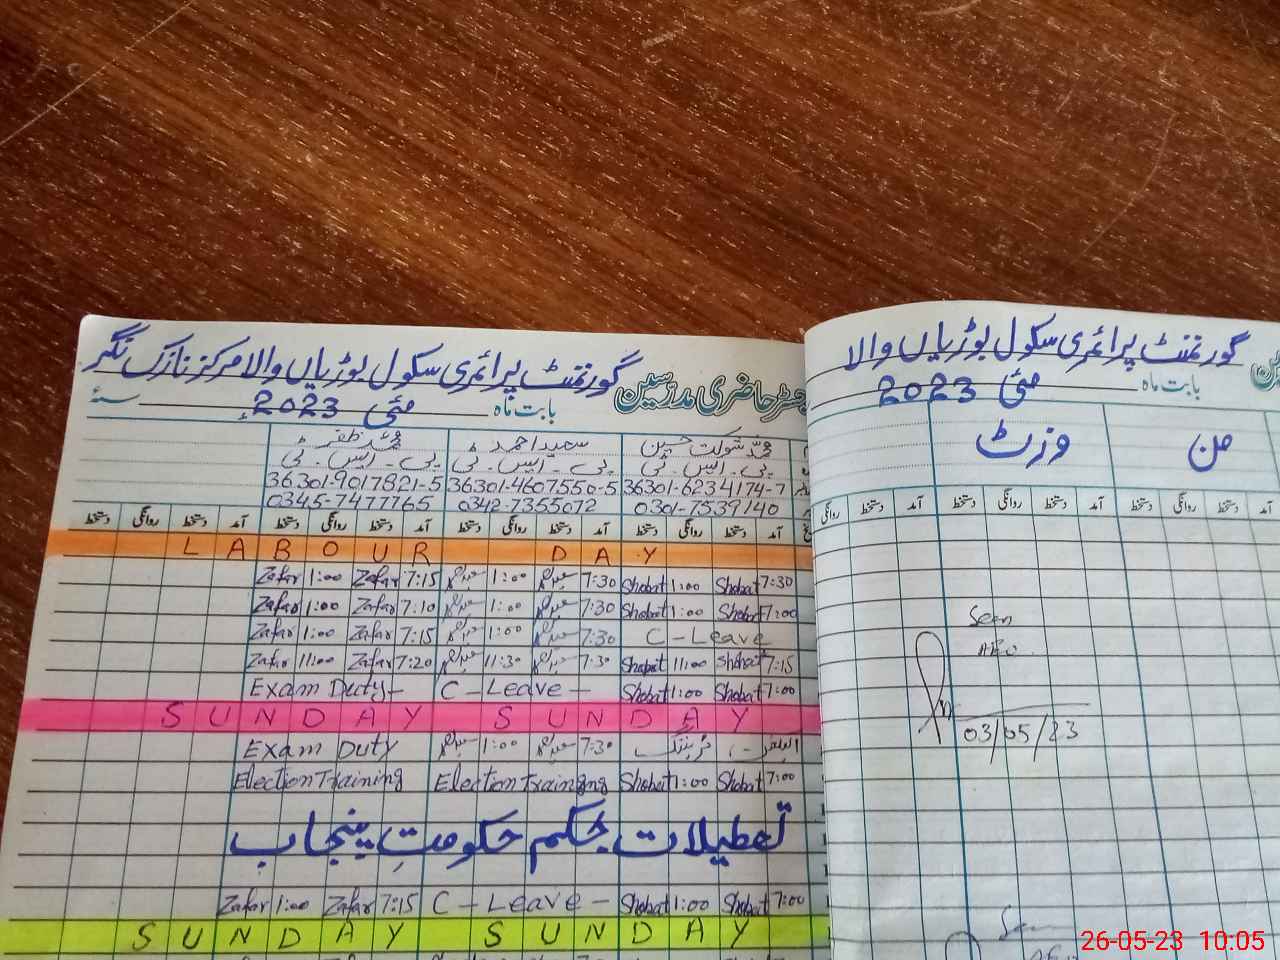 رجسٹر حاضری مدرسین گورنمنٹ پرائمری سکول بوڑیاں والا مرکز نازک نگر
بابت ماہ مئی 2023ء سنہ
محمد شوکت حسین سعید احمد محمد ظفر
پی۔ایس۔ٹی پی۔ایس۔ٹی پی۔ایس۔ٹی
36301-9017821-5 36301-4607550-5 36301-6234174-7
0345-7477765 0342-7355072 0301-7539140
آمد دستخط روانگی دستخط آمد دستخط روانگی دستخط آمد دستخط روانگی دستخط روانگی دستخط
LABOUR DAY
Zafar 1:00 Zafar 7:15 سعید احمد 1:00 سعید احمد 7:30 Shobat 1:00 Shobat 7:30
Zafar 1:00 Zafar 7:10 سعید احمد 1:00 سعید احمد 7:30 Shobat 1:00 Shobat 7:00
Zafar 1:00 Zafar 7:15 سعید احمد 1:00 سعید احمد 7:30 C-Leave
Zafar 11:00 Zafar 7:20 سعید احمد 11:30 سعید احمد 7:30 Shobat 11:00 Shobat 7:15
Exam Duty- C-Leave- Shobat 1:00 Shobat 7:00
SUNDAY SUNDAY
Exam Duty سعید احمد 1:00 سعید احمد 7:30 الیکشن ٹریننگ
Election Training Election Training Shobat 1:00 Shobat 7:00
تعطیلات بحکم حکومتِ پنجاب
Zafar 1:00 Zafar 7:15 C-Leave- Shobat 1:00 Shobat 7:00
SUNDAY SUNDAY
گورنمنٹ پرائمری سکول بوڑیاں والا
بابت ماہ مئی 2023
وزٹ
آمد دستخط روانگی دستخط آمد دستخط روانگی
Seen
AEO
03/05/23
Seen
26-05-23 10:05